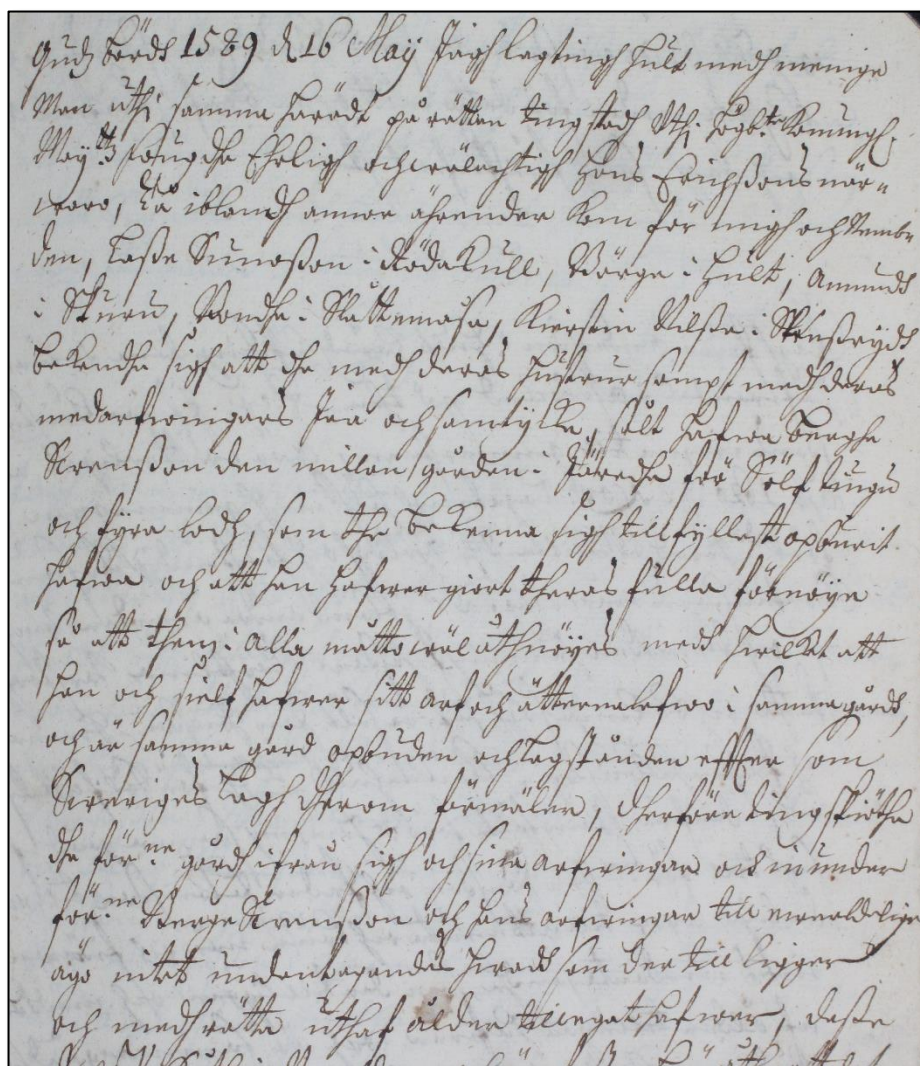 Gudz Börds 1589 d 16 Maÿ Jagh lagtingh hult medh menige
Man uthi samma häradt på rätten tingstadh Uthi högb:te Konungh
Maÿ:ttz fougdhe Ehrligh och wälachtigh Hans Erichßons när„
waro, kå iblandh annor ährender kom för migh och Nemb„
den, Laße Sunoßon i Rödakull, Börge i Hult, Amundh
i Skuru, Bondhe i Slättemåsa, Kierstin Nilße i Stenßrydh
bekendhe sigh att dhe medh deras hustrur sampt medh deras
medarfwingars Jaa och samtÿkke, sålt hafwa Berghe
Swenßon den millan gården i Järedha för Sölf tiugu
och fyra lodh, som the bekenna sigh till fyllest opburit
hafwa och att han hafwer giort theras fulla förnöÿe
så att them i alla motto wäl åthnöÿes medh hwilket att
han och sielf hafwer sitt arf och ätternalefwo i samma gårdh,
och är samma gård opbuden och lagstånden effter som
Sweriges Lagh dherom förmäler, dherföre tingskiötha
dhe för:ne gårdh ifrån sigh och sina arfwingar och inunder
för:ne Berge Swenßon och hans arfwingar till ewerdelige
ägo intet undentagandes hwadh som der till ligger
och medh rätta uthaf ålder tillegat hafwer, deße